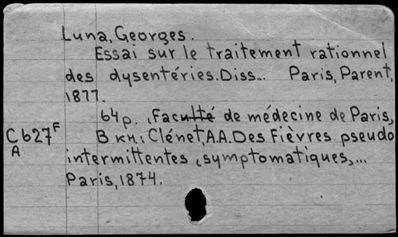 Luna, Georges.
Essai sur le traitement rationnel
des dysentéries. Diss... Paris, Parent,
1877.
64p. (Faculté de médecine de Paris,
C627F В кн.: Clénet, A.A. Des Fièvres pseudo
A intermittentes (symptomatiques,...
Paris, 1874.